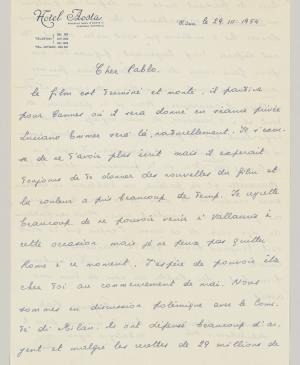 Hotel Aosta
Rome le 29.III.1954
Cher Pablo.
Le film est terminé et monté. il partira
pour Cannes où il sera donné en séance privée
Luciano Emmer sera là, naturellement. Il s'excu-
se de ne t'avoir plus écrit mais il esperait
toujours de te donner des nouvelles du film et
la couleur a pris beaucoup de temp. Je regrette
beaucoup de ne pouvoir venir à Vallauris à
cette occasion mais je ne peux pas quitter
Rome à ce moment. J'espère de pouvoir être
chez toi au commencement de mai. Nous
sommes en discussion polémique avec le Comi-
té di Milan. Ils ont dépensé beaucoup d'ar-
gent et malgré les recettes de 29 millions de